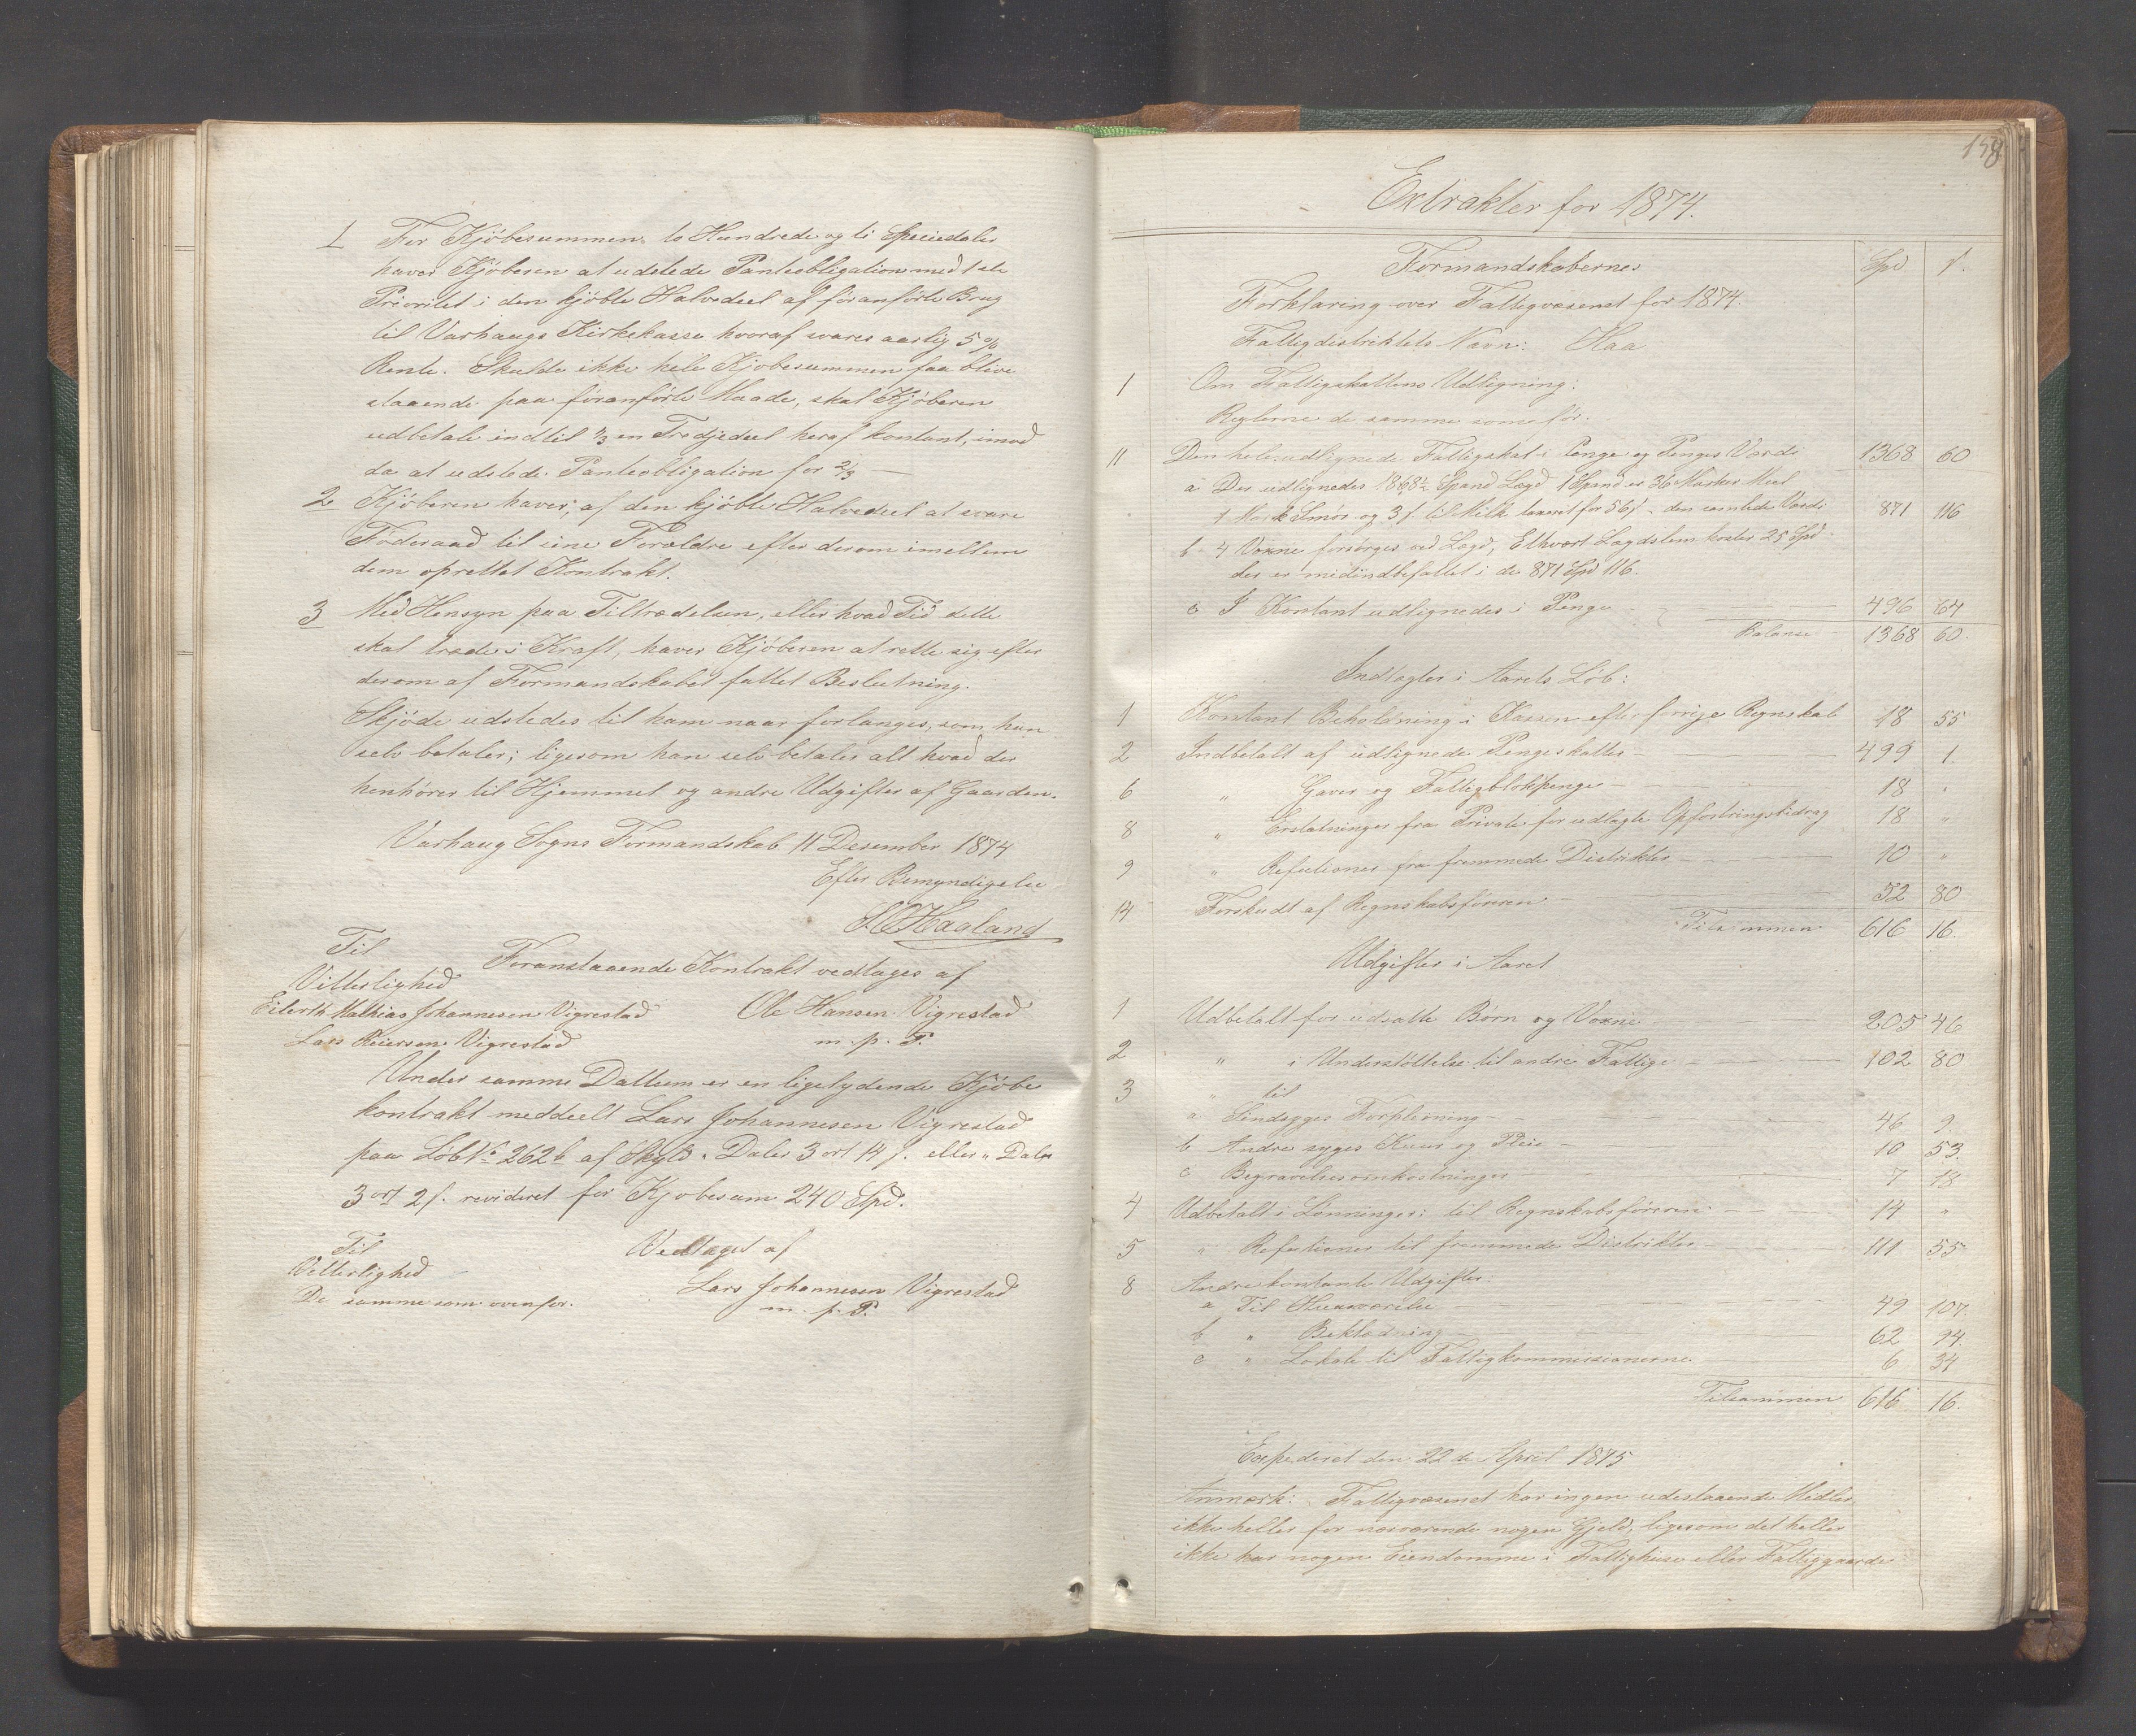 1 For Kjöbesummen to Hundrede og ti Speciedaler
haver Kjöberen at udstede Panteobligation med 1ste
Prioritet i den kjöbte Halvedeel af foranförte Brug
til Varhaugs Kirkekasse hvoraf svares aarlig 5 %
Rente. Skulde ikke hele Kjöbesummen faa blive
staaende paa foranförte Maade, skal Kjöberen
udbetale indtil 1/3 en Tredjedeel heraf kontant, imod
da at udstede Panteobligation for 2/3 —
2 Kjöberen haver, af den kjöbte Halvedeel at svare
Föderaad til sine Forældre efter derom imellem
dem oprettet Kontrakt.
3 Med Hensyn paa Tiltrædelsen, eller hvad Tid dette
skal træde i Kraft, haver Kjöberen at rette sig efter
derom af Formandskabet fattet Beslutning.
Skjöde udstedes til ham naar forlanges, som han
selv betaler; ligesom han selv betaler alt hvad der
henhörer til Hjemmet og andre Udgifter af Gaarden.
Varhaug Sogns Formandskab 11 Desember 1874
Efter Bemyndigelse
Haaland
Til Foranstaaende Kontrakt vedtages af
Vitterlighed
Eilerth Mathias Johannesen Vigrestad Ole Hansen Vigrestad
Lars Reiersen Vigrestad m. p. P.
Under samme Dattum er en ligelydende Kjöbe
kontrakt meddeelt Lars Johannesen Vigrestad
paa Löb No 262b af Skyld " Daler 3 ort 14 s. eller " Daler
3 ort 2 s. revideret for Kjöbesum 240 Spd.
Til Vedtaget af
Vitterlighed
De samme som ovenfor. Lars Johannesen Vigrestad
m. p. P.
158
Extrakter for 1874.
Formandskabernes Spd s.
Forklaring over Fattigvæsenet for 1874.
Fattigdistriktets Navn: Haa
1 Om Fattigskattens Udligning:
Reglerne de samme som för.
11 Den hele udlignede Fattigskat i Penge og Penges Værdi 1368 60
a Der udlignedes 1868½ Spand Lægd, 1 Spand er 36 Marker Meel
1 Mark Smör og 3 s. til Melk taxeret for 56 s. den samlede Værdi 871 116
b 4 Voxne forsörges ved Lægd, Ethvert Lægdslem koster 25 Spd
der er medindbefattet i de 871 Spd 116.
c I Kontant udlignedes i Penge 496 64
Balanse 1368 60.
Indtægter i Aarets Löb:
1 Kontant Beholdning i Kassen efter forrige Regnskab 18 55
2 Indbetalt af udlignede Pengeskatter 499 1.
6 " Gaver og Fattigblokpenge 18 "
8 " Erstatninger fra Private for udlagte Opfostringsbidrag 18 "
9 " Refusioner fra fremmede Distrikter 10 "
14 Forskudt af Regnskabsföreren 52 80
Tilsammen 616 16.
Udgifter i Aaret
1 Udbetalt for udsatte Börn og Voxne 205 46
2 " i Understöttelse til andre Fattige 102 80
3 " til
a Sindsyges Forpleining 46 9
b Andre syges Kuur og Pleie 10 53.
c Begravelsesomkostninger 7 18
4 Udbetalt i Lönninger: til Regnskabsföreren 14 "
5 " Refusioner til fremmede Distrikter 111 55
8 Andre kontante Udgifter:
a Til Huusværelse 49 107.
b " Beklædning 62 14.
c " Lokale til Fattigkommissionerne 6 34
Tilsammen 616 16.
Expederet den 22de April 1875
Anmærk: Fattigvæsenet har ingen udestaaende Midler,
ikke heller for nærværende nogen Gjeld, ligesom det heller
ikke har nogen Eiendomme i Fattighuse eller Fattiggaarde